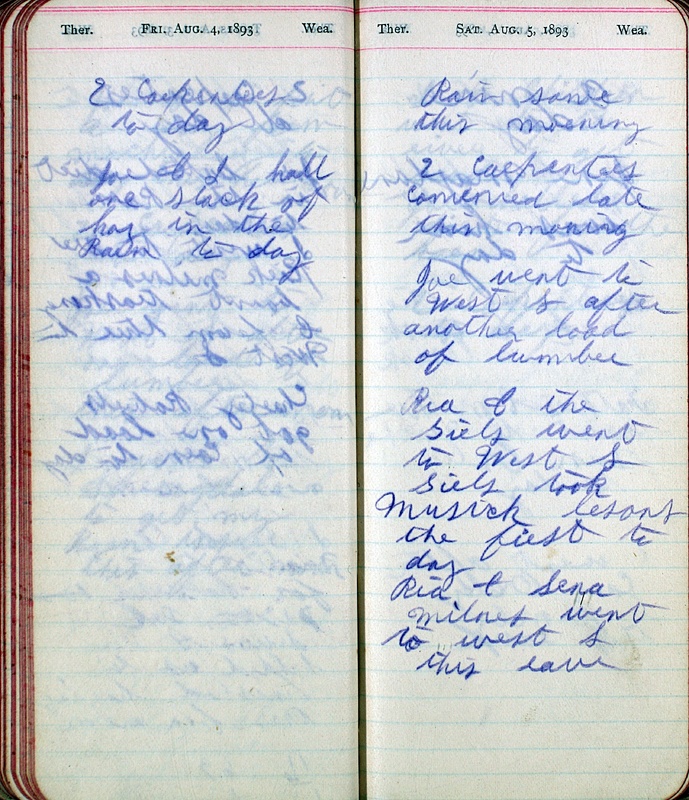 Ther. FRI. AUG. 4, 1893 Wea.
2 Carpenters
to day
Joe & I hall
one stack of
hay in the
Rain to day
Ther. SAT. AUG. 5, 1893 Wea.
Rain some
this morning
2 Carpenters
Comenred late
this moring
Joe went to
West S after
another load
of lumber
Ria & the
Giels went
to West S
Giels took
Musick lesons
the first to
day
Ria & Sena
Milnes went
to west S
this eave